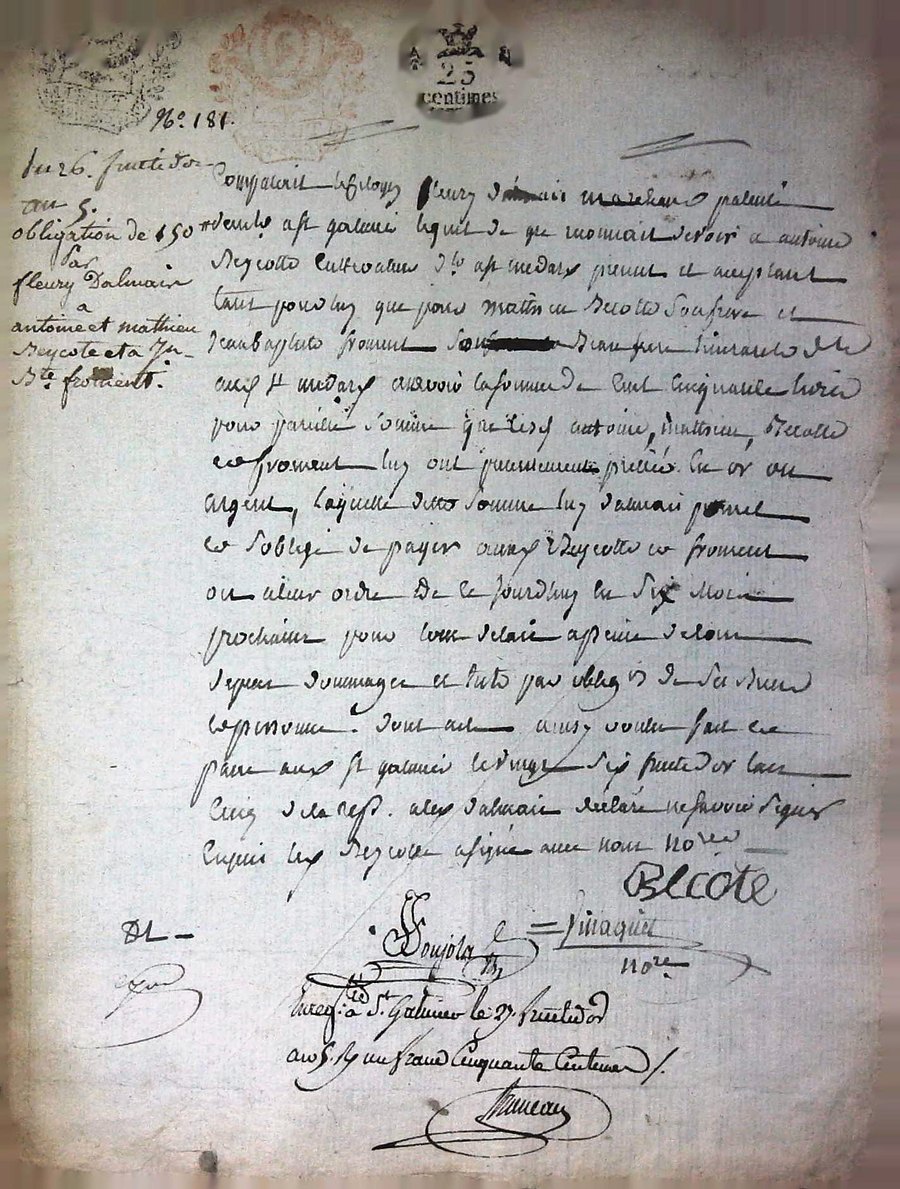 25
centimes
No. 181.
Du 26. fructidor
an 5.
obligation de 150 ₶
par
fleury Dalmais
a
antoine et mathieu
Beycote et a Jn-
Bte. froment.
Comparait le Citoyen fleury marchand
a st galmier lequel de gré reconnait devoir a antoine
Beycotte Cultivateur de st medard present et acceptant
tant pour luy que pour mathieu Becotte Son frere et
Jean baptiste froment Son Beau frere de
st medard la somme de Cent Cinquante livres
pour pareille Somme que lesd antoine, mathieu, Becotte
et froment luy ont presentement prettée en or ou
argent, laquelle ditte Somme luy dalmais promet
et s'oblige de payer auxd Beycotte et froment
ou a leur ordre De ce jourdhuy en Six Mois
prochains pour tout delais a peine de tous
depens dommages et par oblig on de Ses Biens
et personne. dont acte ainsy voulu fait et
passé aud st galmier le vingt Six fructidor lan
Cinq de la rep. dalmais declaré ne savoir Signer
Enquis led Beycotte a signé avec nous nore
BECOTE
nore
DL
Enreg. té a St. Galmier le 27. fructidor
an 5. R un franc Cinquante Centimes